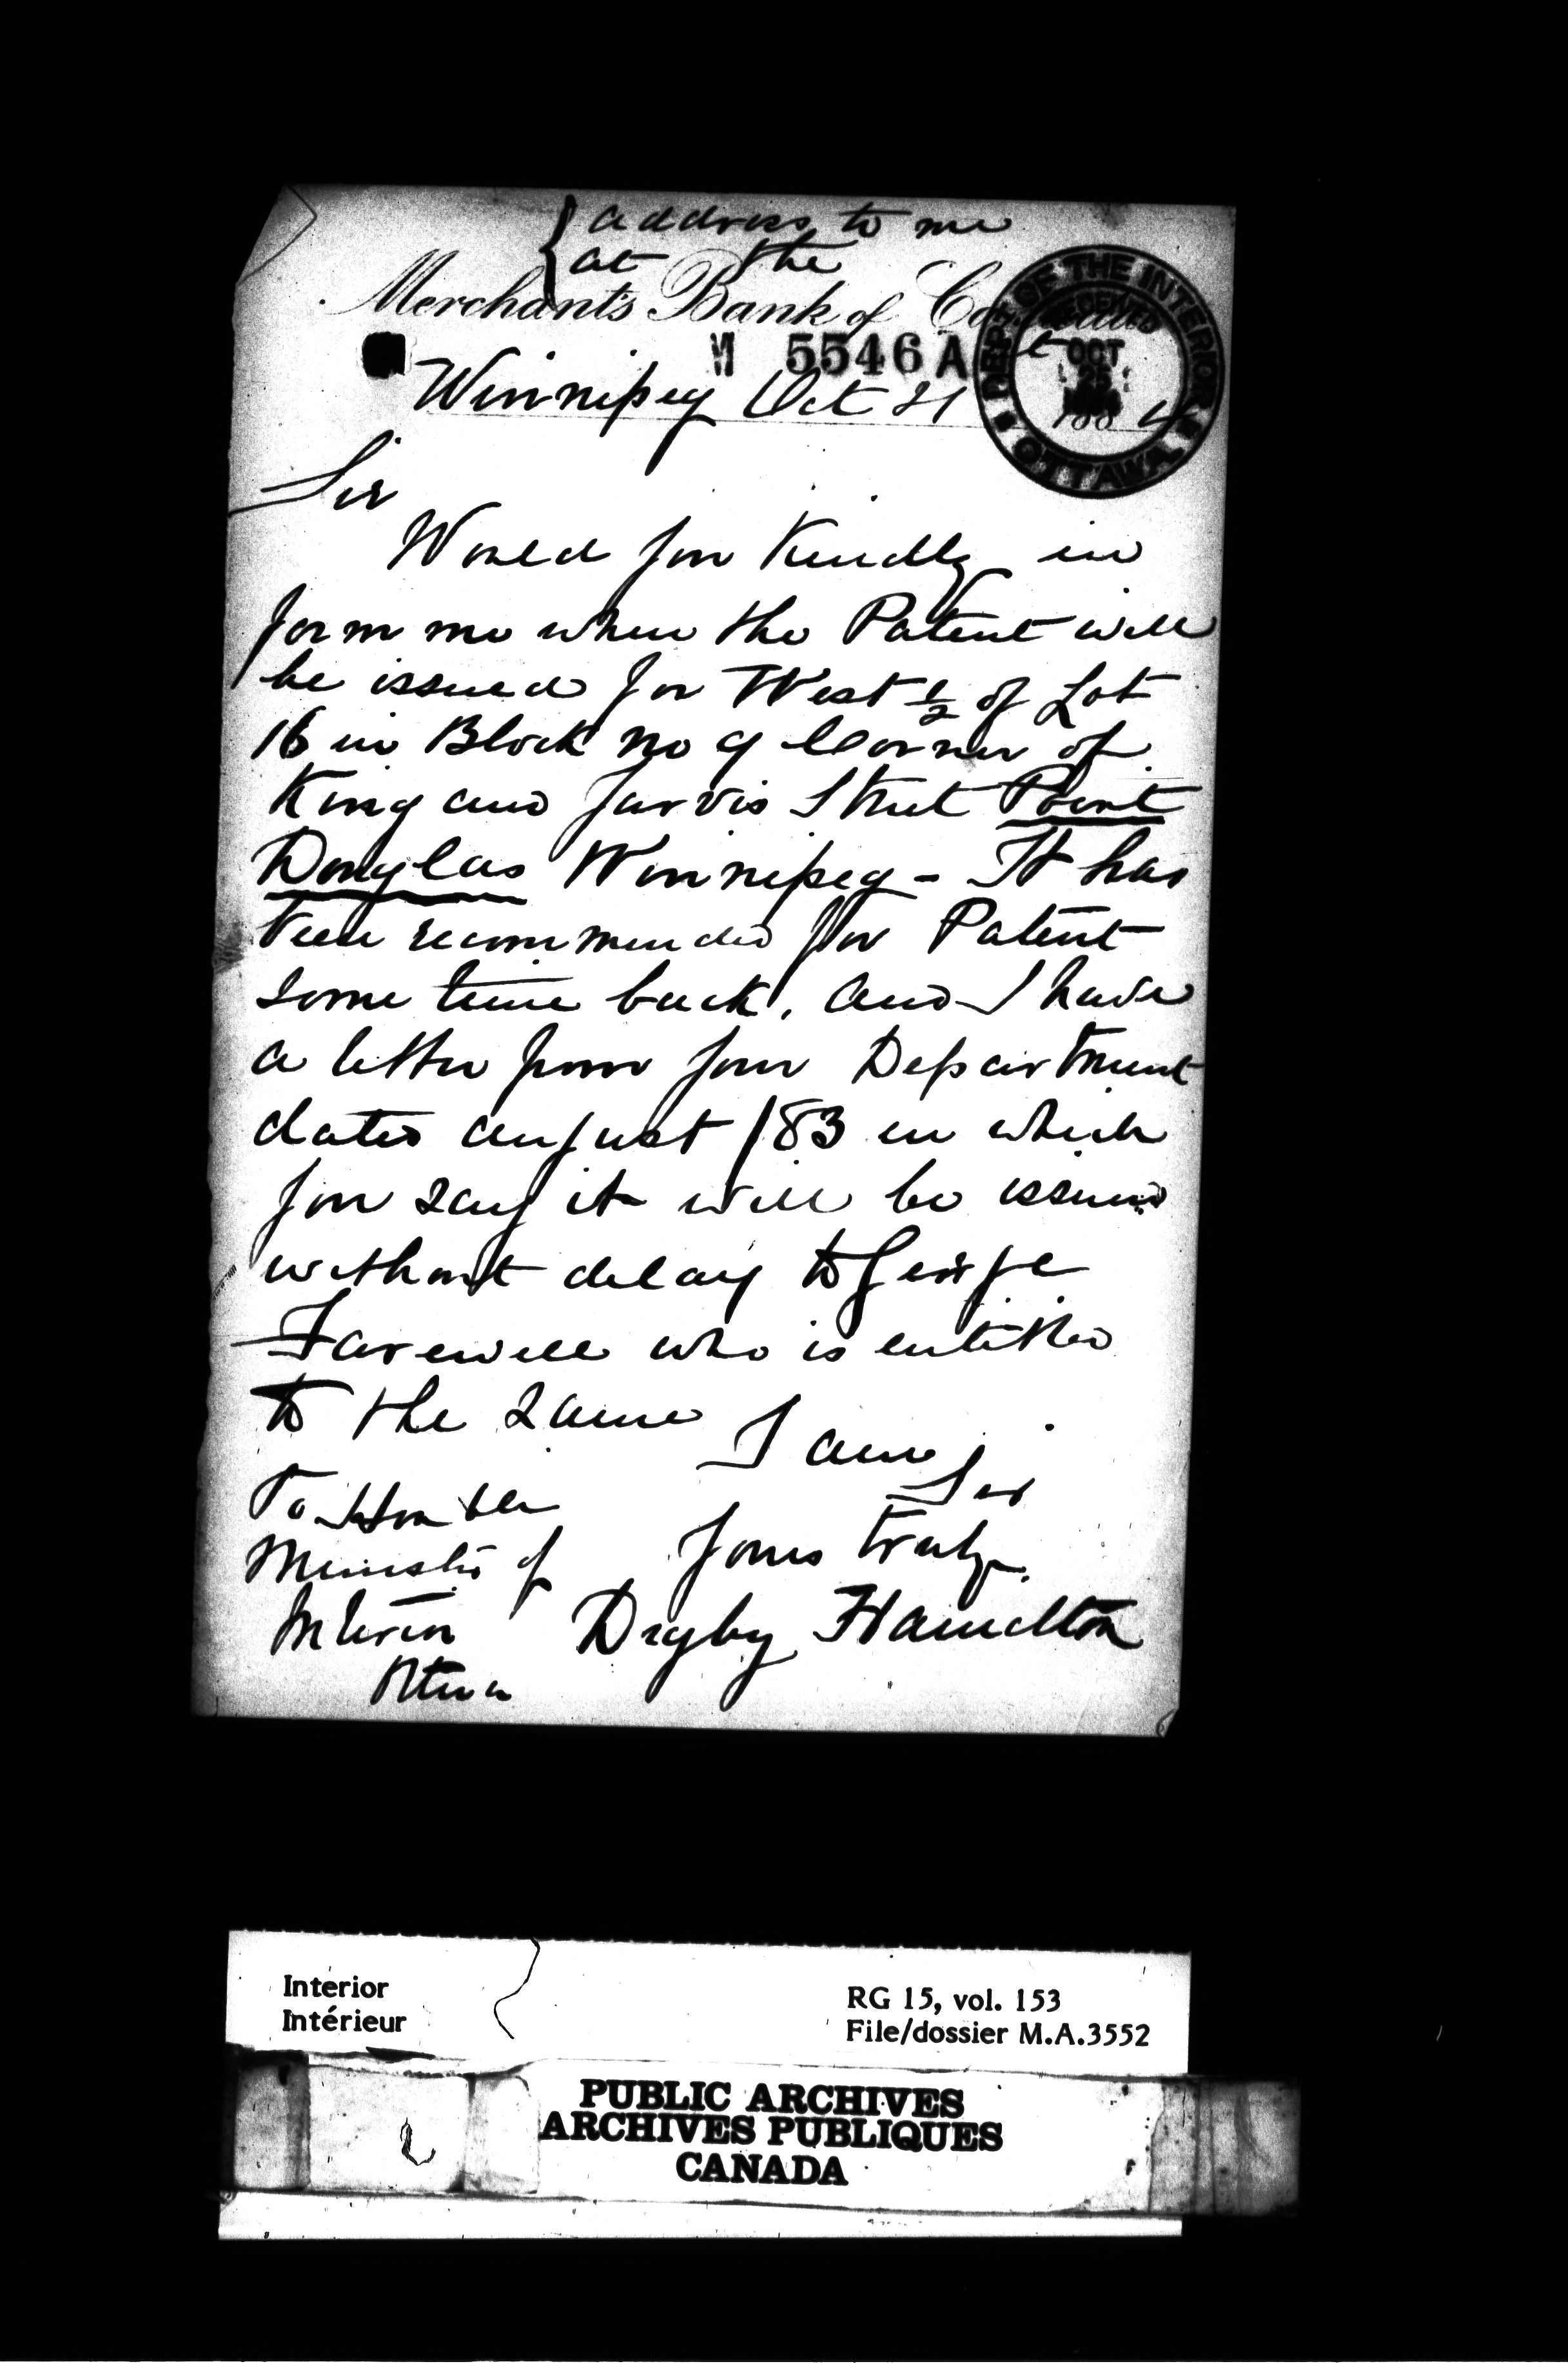 address to me
at the
Merchants Bank of Canada
M 5546 A
DEPT. OF THE INTERIOR
RECEIVED
OCT
25
OTTAWA
Winnipeg Oct 21 1884
Sir
Would you Kindly in
form me when the Patent will
be issued for West 1/2 of Lot
16 in Block no 9 Corner of
King and Jarvis Street Point
Douglas Winnipeg - It has
been recommended for Patent
some time back, and I have
a letter from your Department
dated august /83 in which
you say it will be issued
without delay to George
Farewell who is entitled
to the same
I am
Sir
To Honble
Yours truly
Minister of
Interior
Digby Hamilton
Ottawa
Interior
Intérieur
RG 15, vol. 153
File/dossier M.A.3552
PUBLIC ARCHIVES
ARCHIVES PUBLIQUES
CANADA